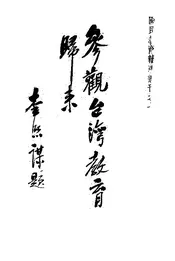 參觀台灣教育
歸來
李熙謀題